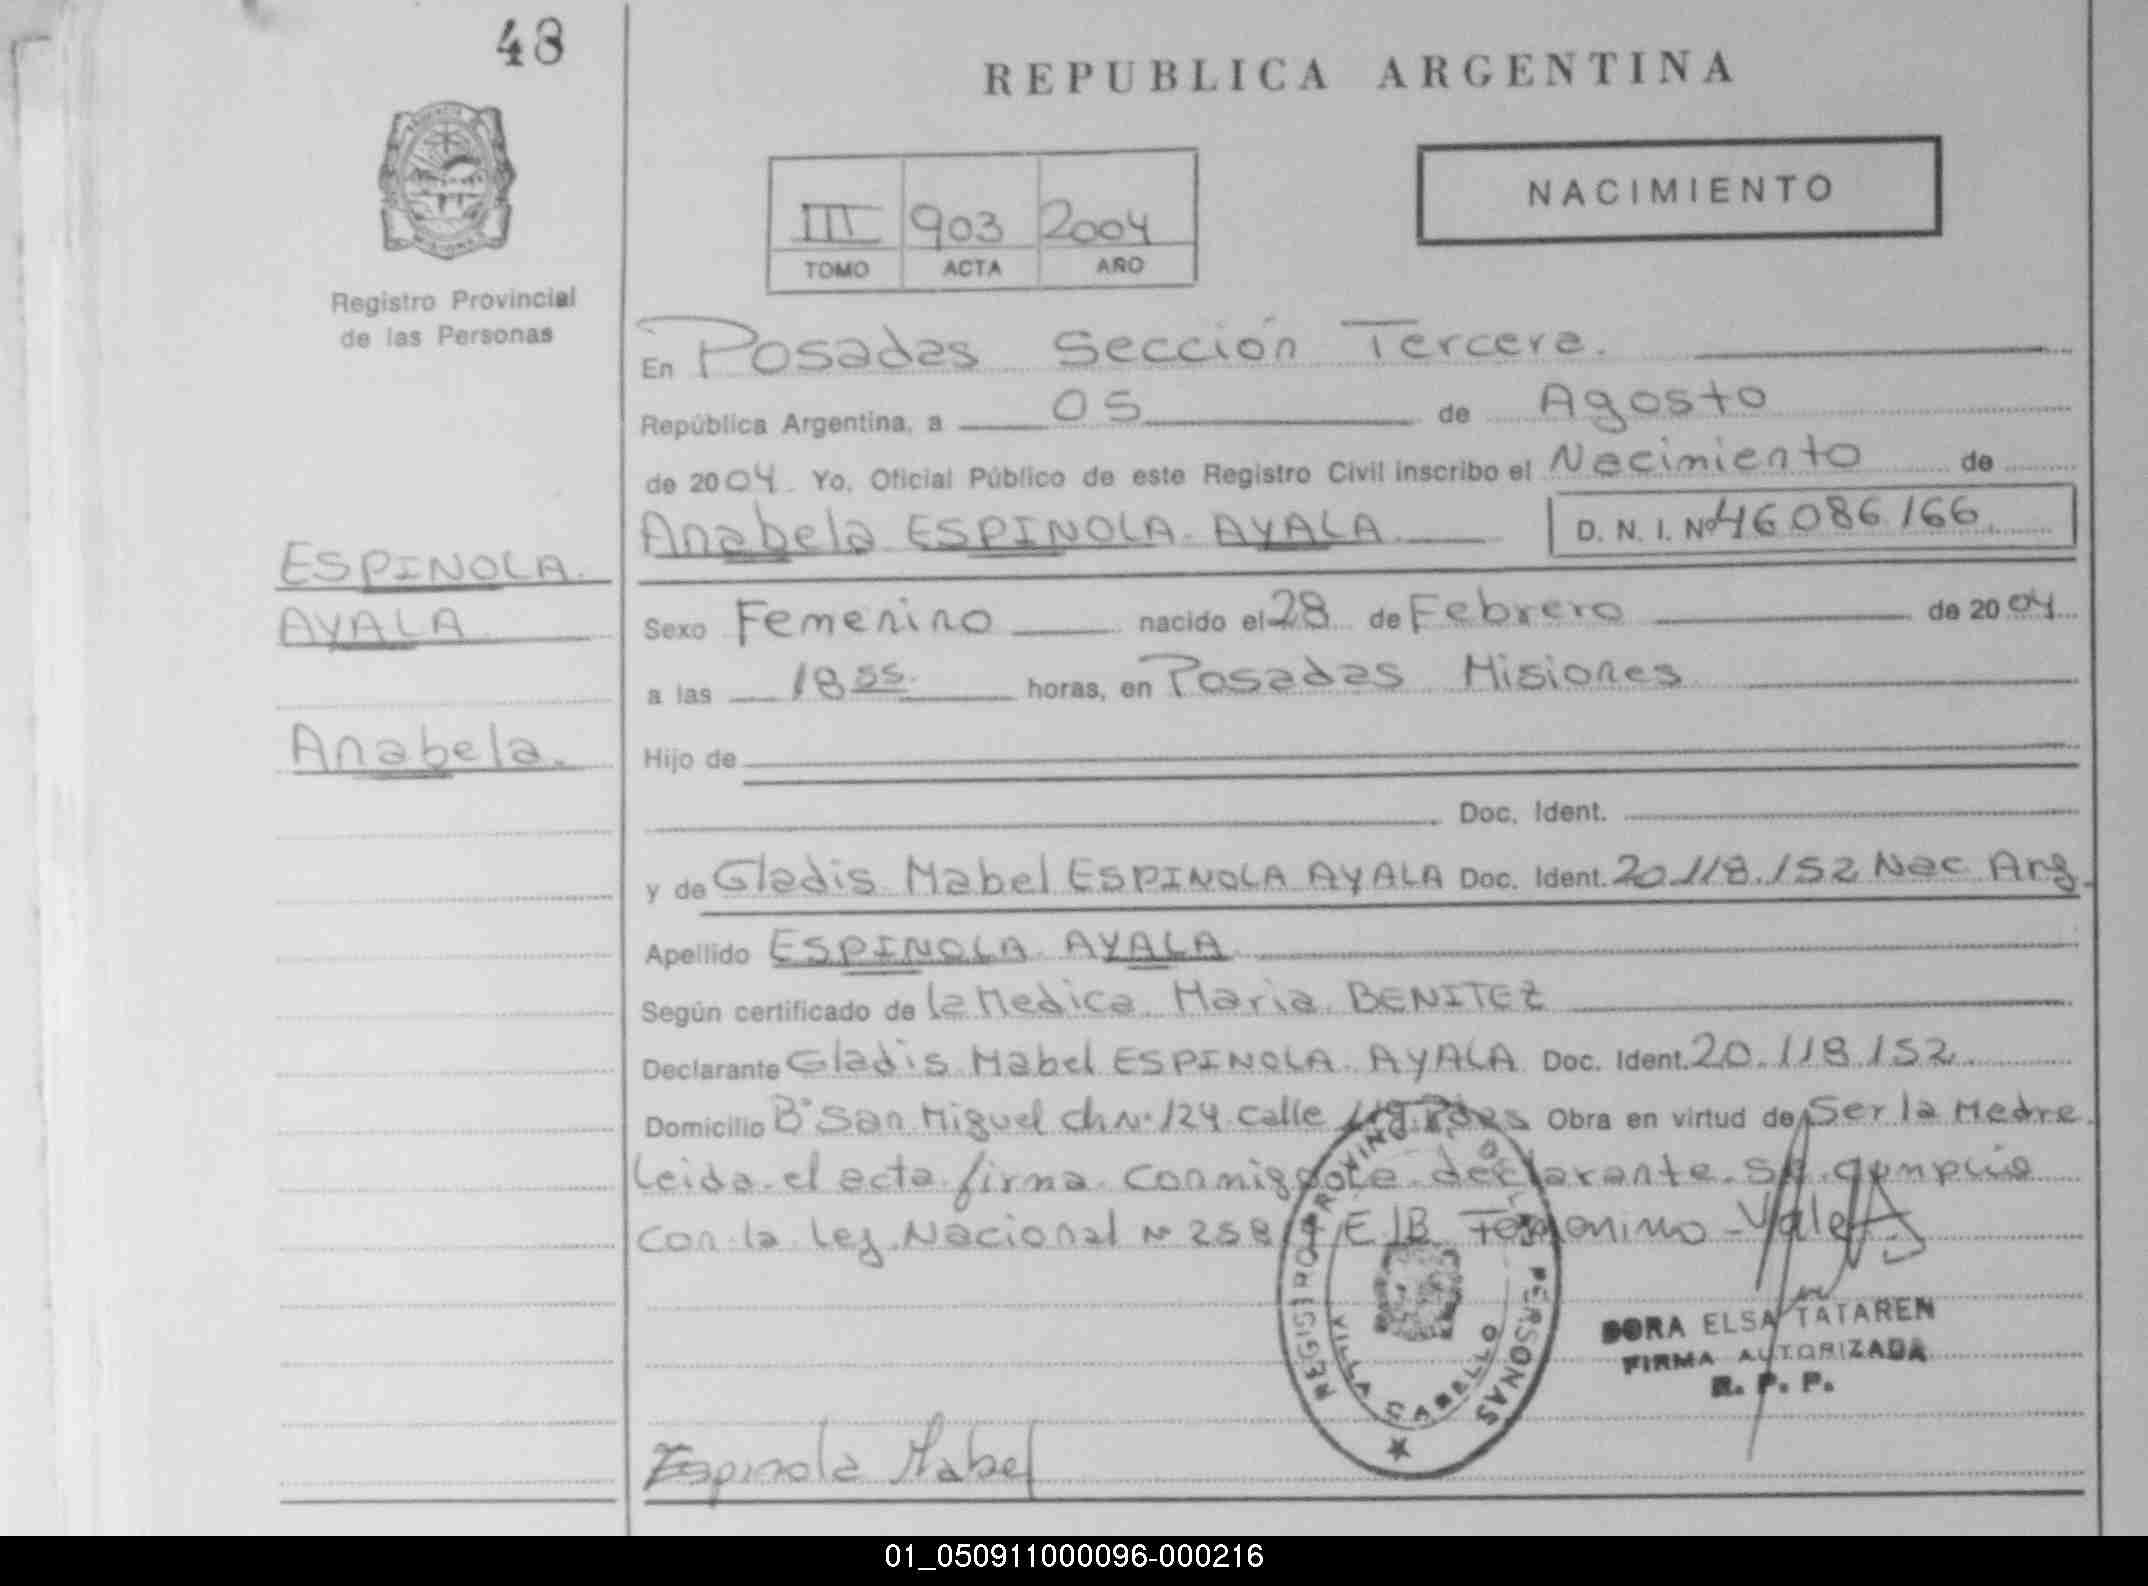 48
REPUBLICA ARGENTINA
NACIMIENTO
III 903 2004
TOMO ACTA AÑO
Registro Provincial
de las Personas
En Posadas Sección Tercera.
República Argentina, a 05 de Agosto
de 2004 Yo, Oficial Público de este Registro Civil inscribo el Nacimiento de
Anabela ESPINOLA AYALA D. N. I. Nº 46.086.166
ESPINOLA
AYALA
Anabela.
Sexo Femenino nacido el 28 de Febrero de 2004
a las 18 55 horas, en Posadas Misiones
Hijo de
Doc. Ident.
y de Gladis Mabel ESPINOLA AYALA Doc. Ident. 20.118.152 Nac Arg.
Apellido ESPINOLA AYALA
Según certificado de la Medica Maria BENITEZ
Declarante Gladis Mabel ESPINOLA AYALA Doc. Ident. 20.118.152
Domicilio Bº San Miguel ch Nº 124 calle Obra en virtud de Ser la Madre
Leida el acta firma conmigo la declarante. Se cumplio
con la Ley Nacional Nº Femenino - Vale
REGISTRO PROVINCIAL DE LAS PERSONAS
VILLA CABELLO
DORA ELSA TATAREN
FIRMA AUTORIZADA
R. P. P.
Espinola Mabel
01_050911000096-000216